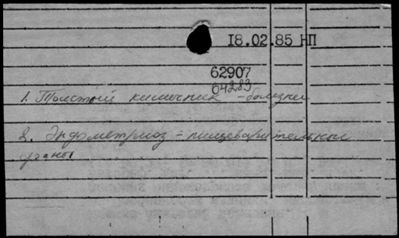 18.02.85 НП
62907
04283
1. Толстый кишечник - болезни
2. Эндометриоз - пищеварительные
органы